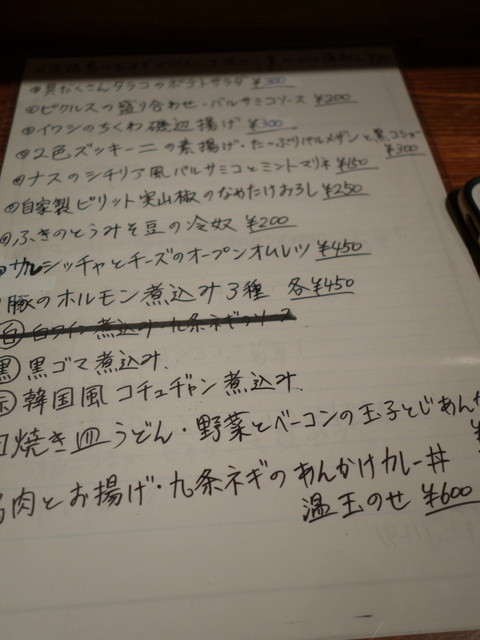 具だくさんタラコのポテトサラダ ¥300
ピクルスの盛り合わせ・バルサミコソース ¥200
イワシのちくわ磯辺揚げ ¥300
2色ズッキーニの素揚げ・たーぷりパルメザンと黒コショー
¥300
ナスのシチリア風バルサミコとミントマリネ ¥150
自家製ピリット実山椒のなめたけおろし ¥250
ふきのとうみそ豆の冷奴 ¥200
サルシッチャとチーズのオープンオムレツ ¥450
豚のホルモン煮込み3種 各¥450
白 白ワイン煮込み・九条ネギのソース
黒 黒ゴマ煮込み.
韓国風コチュヂャン煮込み.
焼き皿うどん・野菜とベーコンの玉子とじあんか
肉とお揚げ・九条ネギのあんかけカレー丼
温玉のせ ¥600